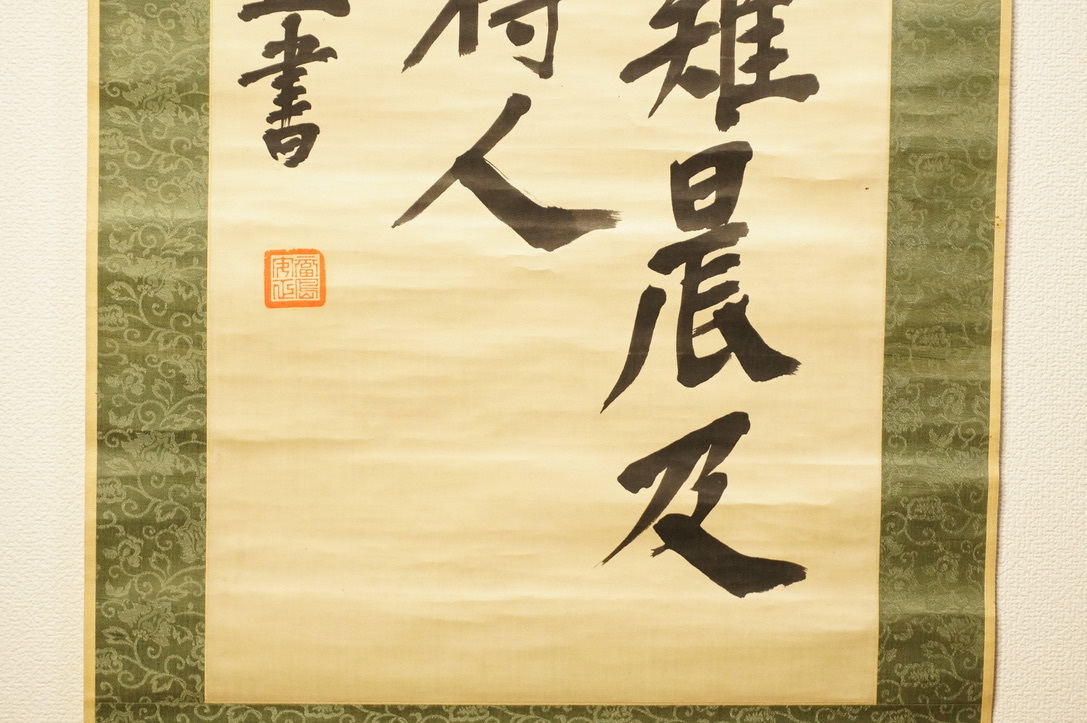 難晨及
待人
書